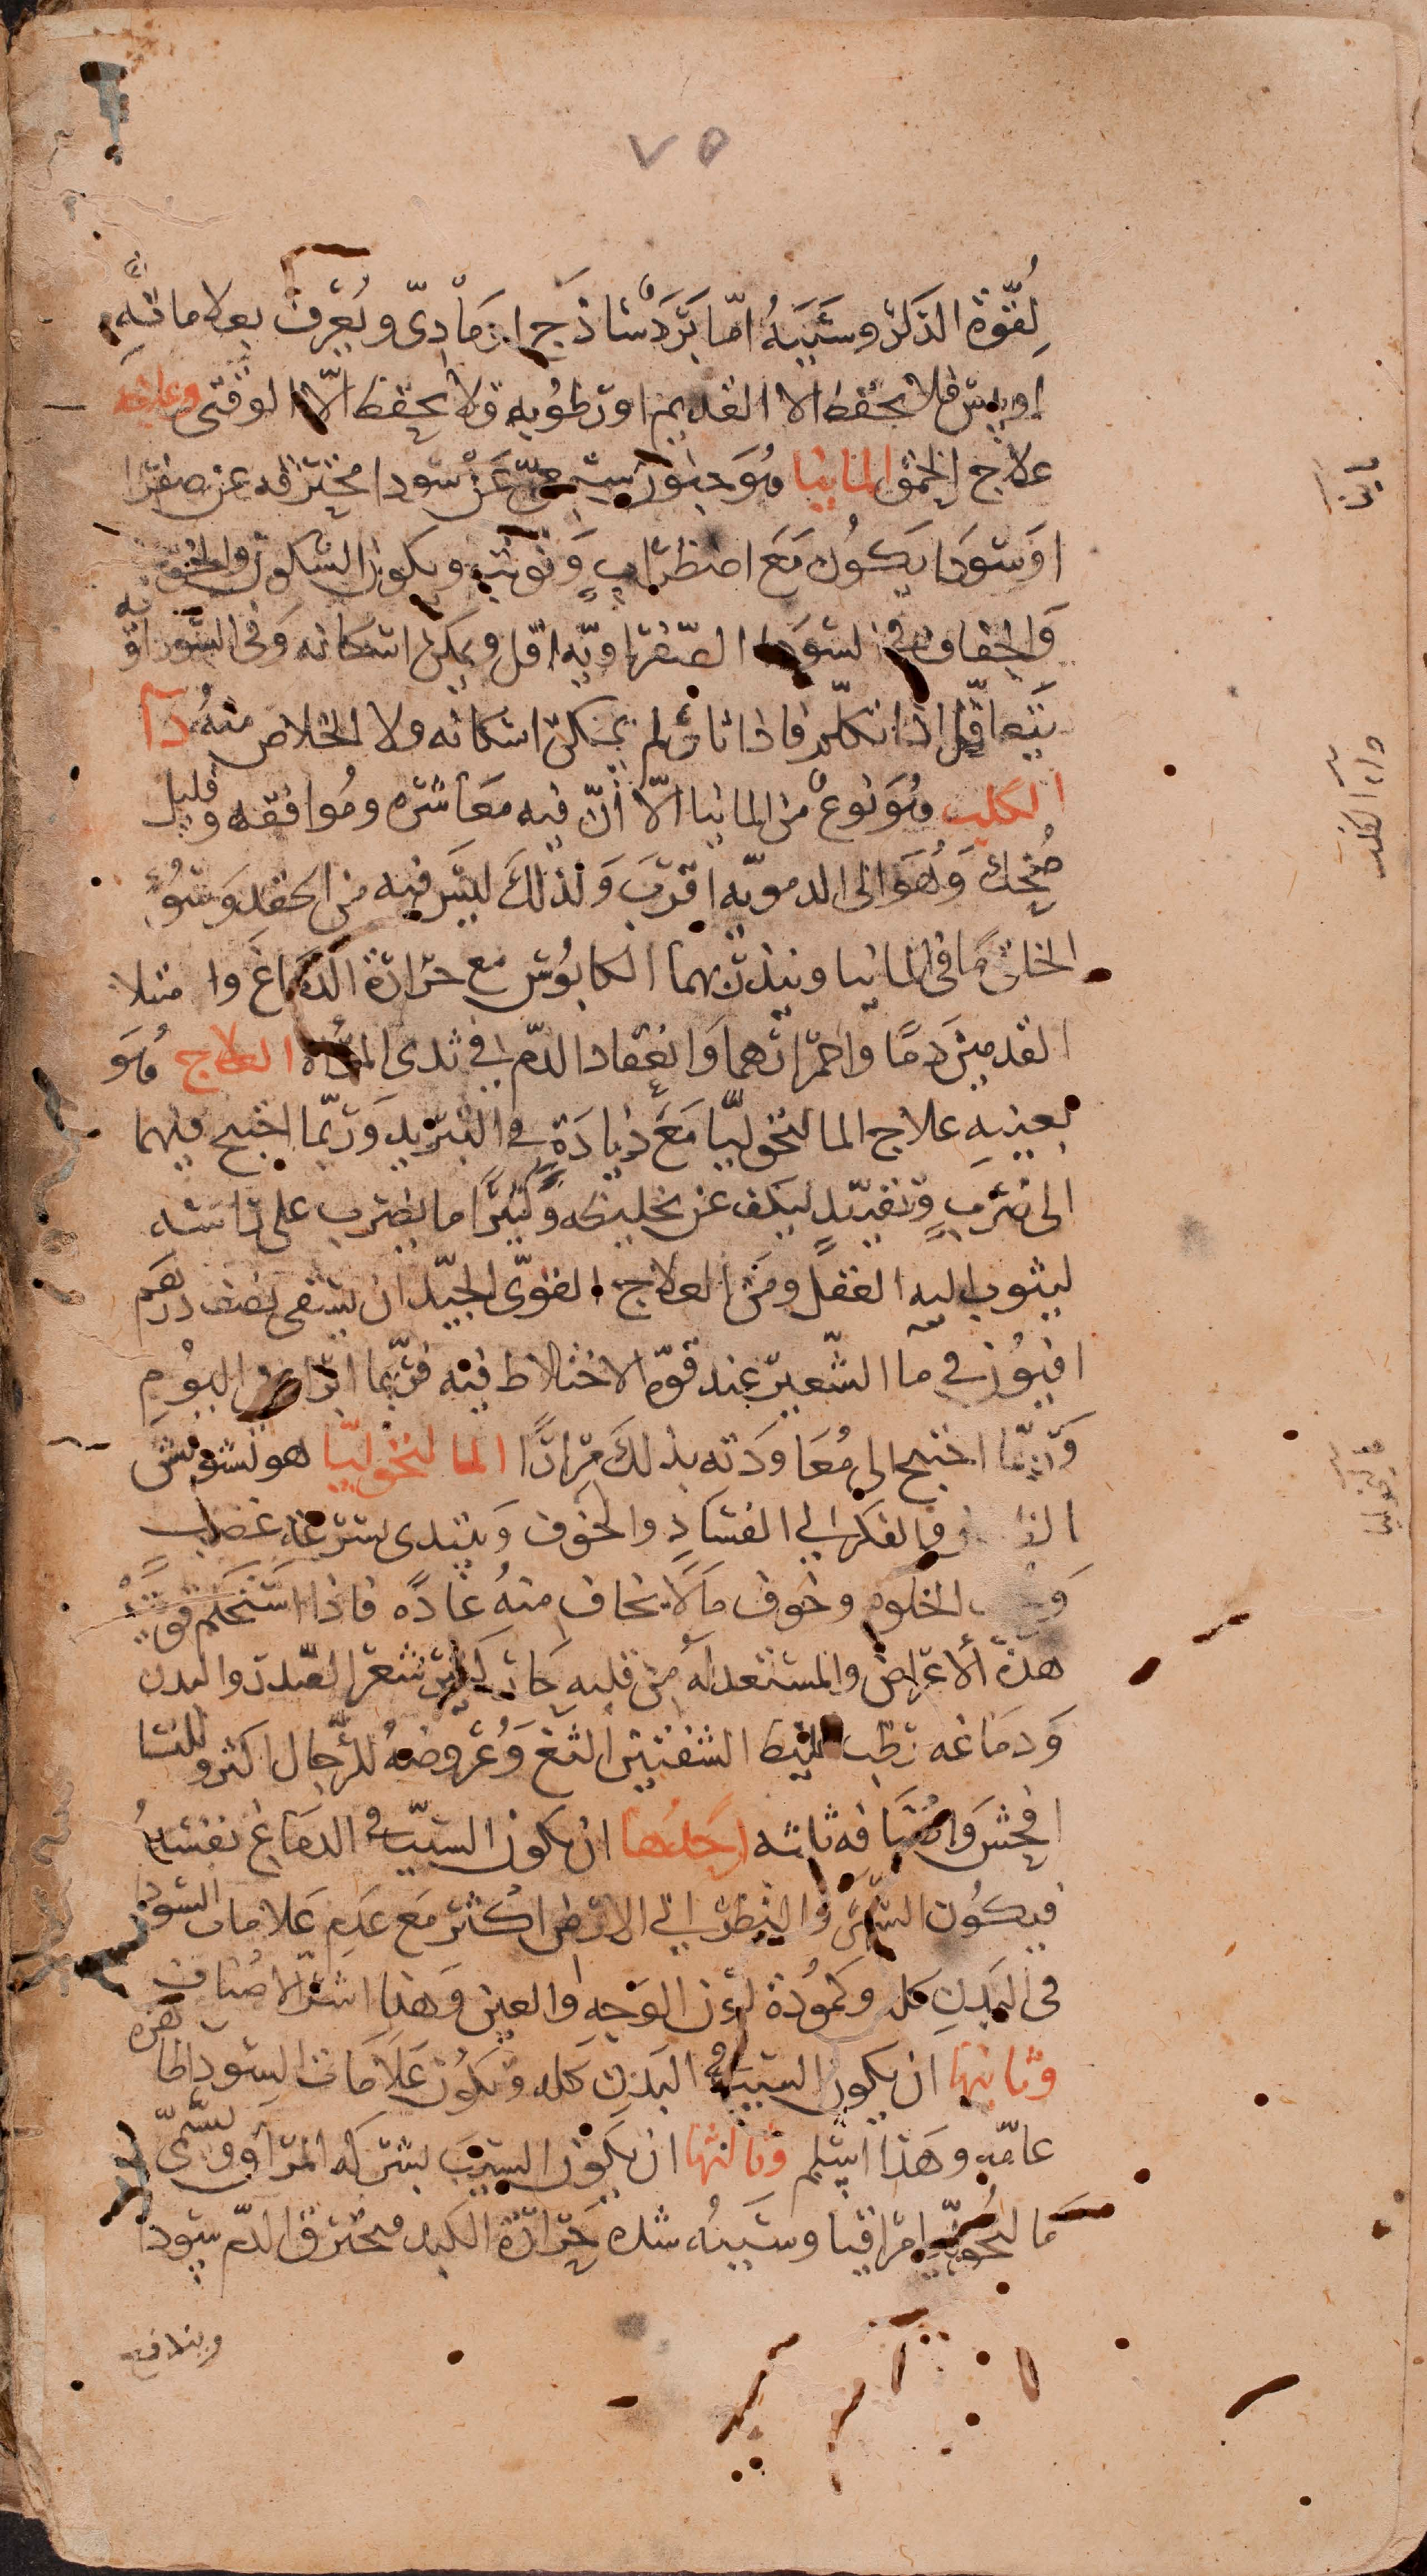 ٧٥
لقوة الذكر وسببه اما برد ساذج او مادى ويعرف بعلاماته
او يبس فلا يحفظ الا القديم او رطوبه ولا يحفظ الا الوقتى وعلاجه
علاج الحمق المانيا وهو جنون سبعى عن سودا محترقه عن صفرا
او سودا يكون مع اضطراب وتوثب ويكون السكون والخوف
والجفاف فى السودا الصفراويه اقل ويمكن اسكانه وفى السوداويه
يتعاقل اذا تكلم فاذا ثار لم يمكن اسكانه ولا الخلاص منه دآ
الكلب وهو نوع من المانيا الا ان فيه معاشره وموافقه وقليل
ضحك وهو الى الدمويه اقرب ولذلك ليس فيه من الحقد وسوء
الخلق ما فى المانيا وينذر بهما الكابوس مع حرارة الدماغ وامتلا
القدمين دما واحمرارهما وانعقاد الدم فى ثدى المرأه العلاج هو
بعينه علاج المالنخوليا مع زيادة فى التبريد وربما احتيج فيهما
الى ضرب وتقييد ليكف عن تخليطه وكثيرا ما يضرب على راسه
ليثوب اليه العقل ومن العلاج القوى الجيد ان يسقى نصف درهم
افيون فى ما الشعير عند قوة الاختلاط فيه فربما ابرا من اليوم
وربما احتيج الى معاودته بذلك مرارا المالنخوليا هو تشوش
الفكر الى الفساد والخوف ويبتدى بسرعه غضب
و الخلوه وخوف ما لا يخاف منه عادة فاذا استحكم قويت
هذه الاعراض والمستعد له من قلبه حار كثير شعر الصدر والبدن
ودماغه رطب غليظ الشفتين الثغ وعروضه للرجال اكثر وللنسا
افحش واصنافه ثلثه احدها ان يكون السبب فى الدماغ نفسه
فيكون السهر والنظر الى الارض اكثر مع عدم علامات السودا
فى البدن كله وكمودة لون الوجه والعين وهذا اشر الاصناف
وثانيها ان يكون السبب فى البدن كله وتكون علامات السودا ظاهره
عامه وهذا اسلم وثالثها ان يكون السبب بشركه المراق ويسمى
مالنخوليا مراقيا وسببه شده حرارة الكبد فيحترق الدم سودا
ويندفع
مانيا
داء الكلب
مالنخوليا